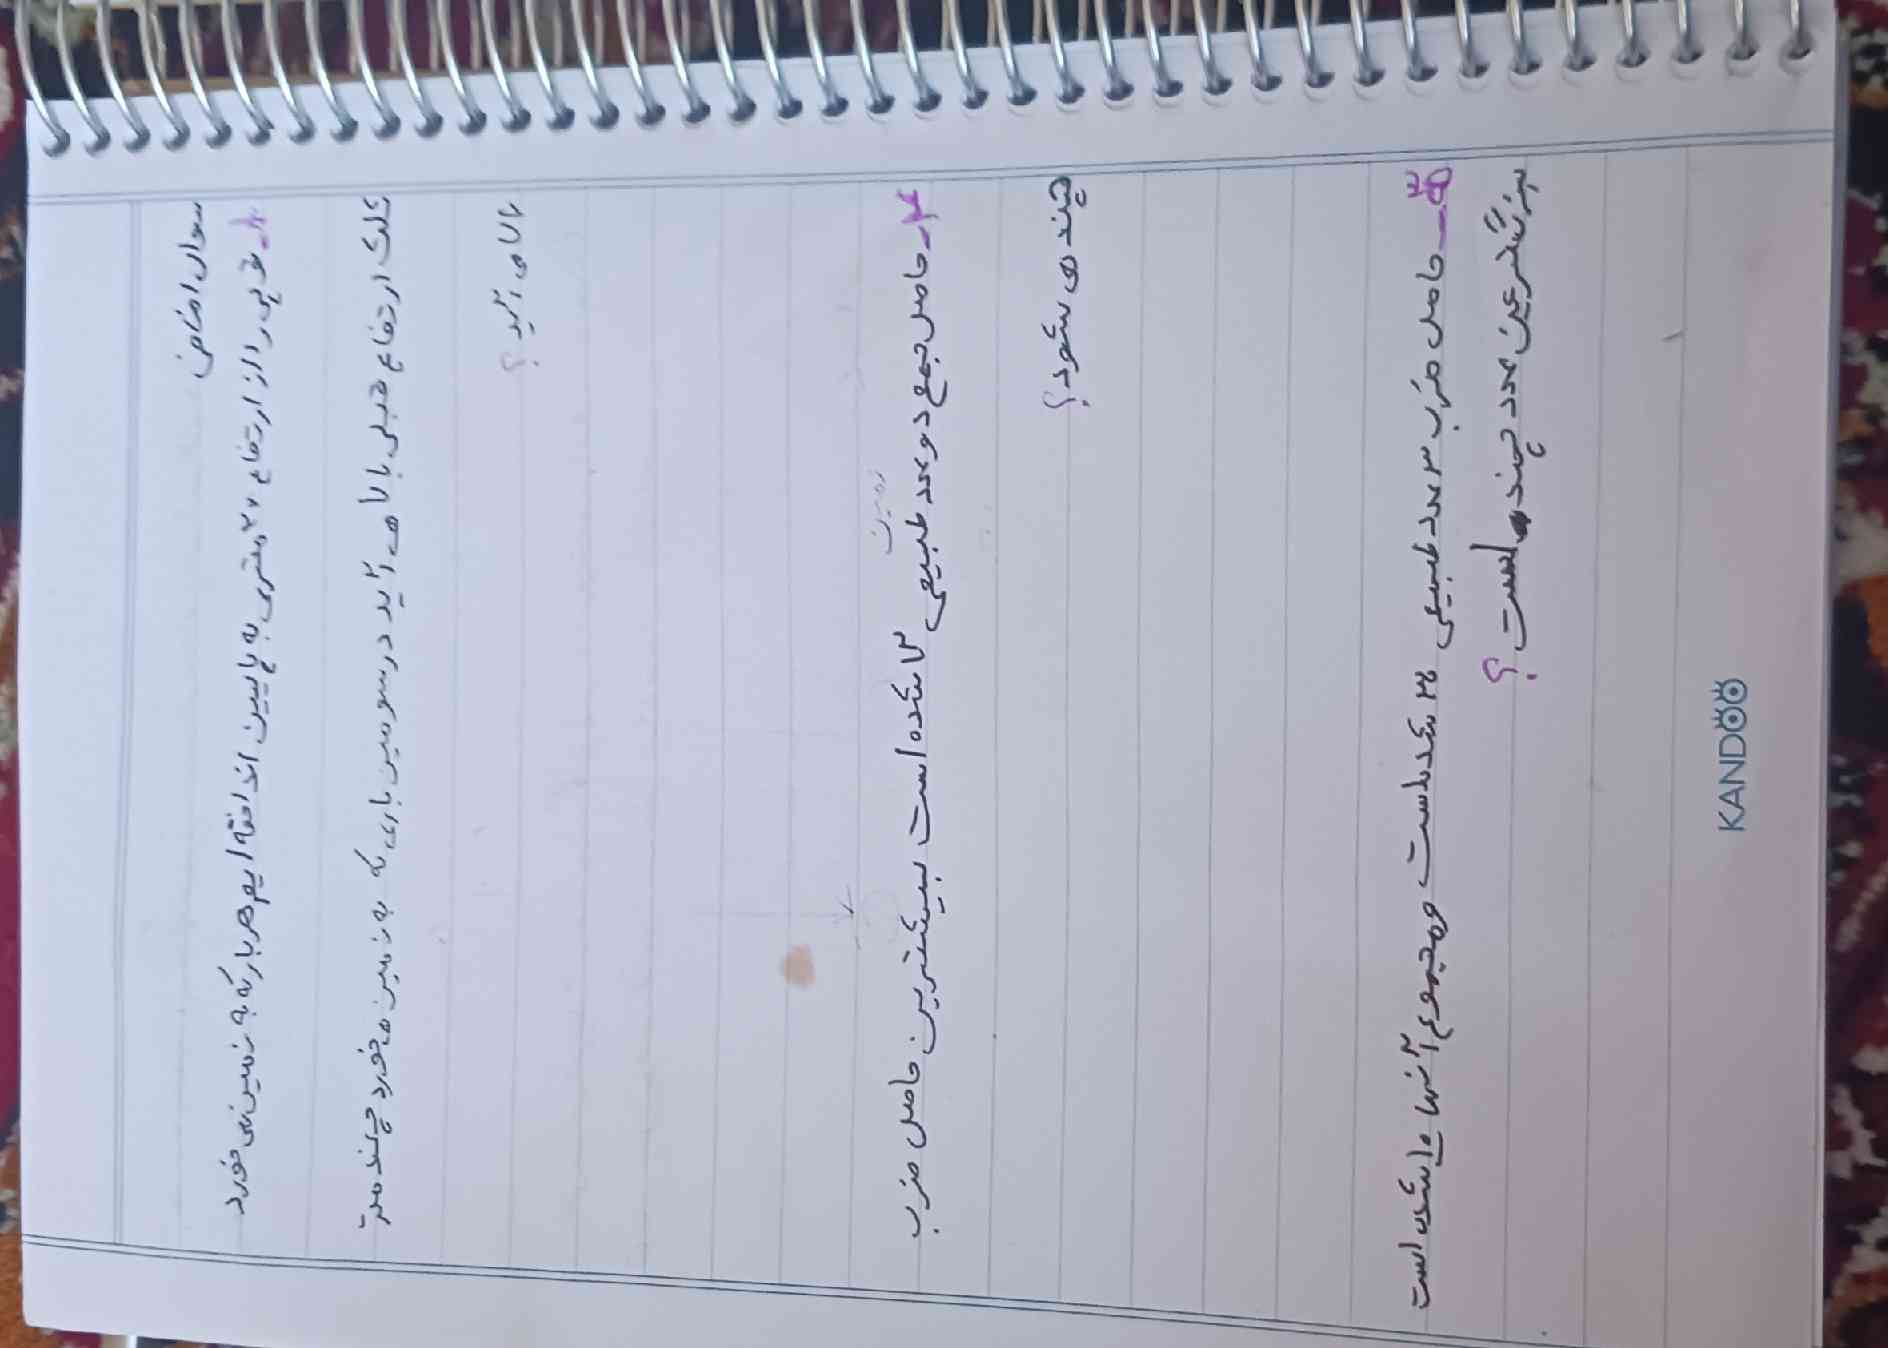 سوال امتحان
۱- توپی را از ارتفاع ۲۷ متری به پایین انداخته ایم هر بار که به زمین می خورد
ثلث ارتفاع قبلی بالا می آید در سومین باری که به زمین می خورد چند متر
بالا می آید؟
زمین
۴- حاصل جمع دو عدد طبیعی شده است بیشترین حاصل ضرب
چند می شود؟
حاصل ضرب ۳ عدد طبیعی شده است و مجموع آنها شده است
بزرگترین عدد چند است؟
KANDOO